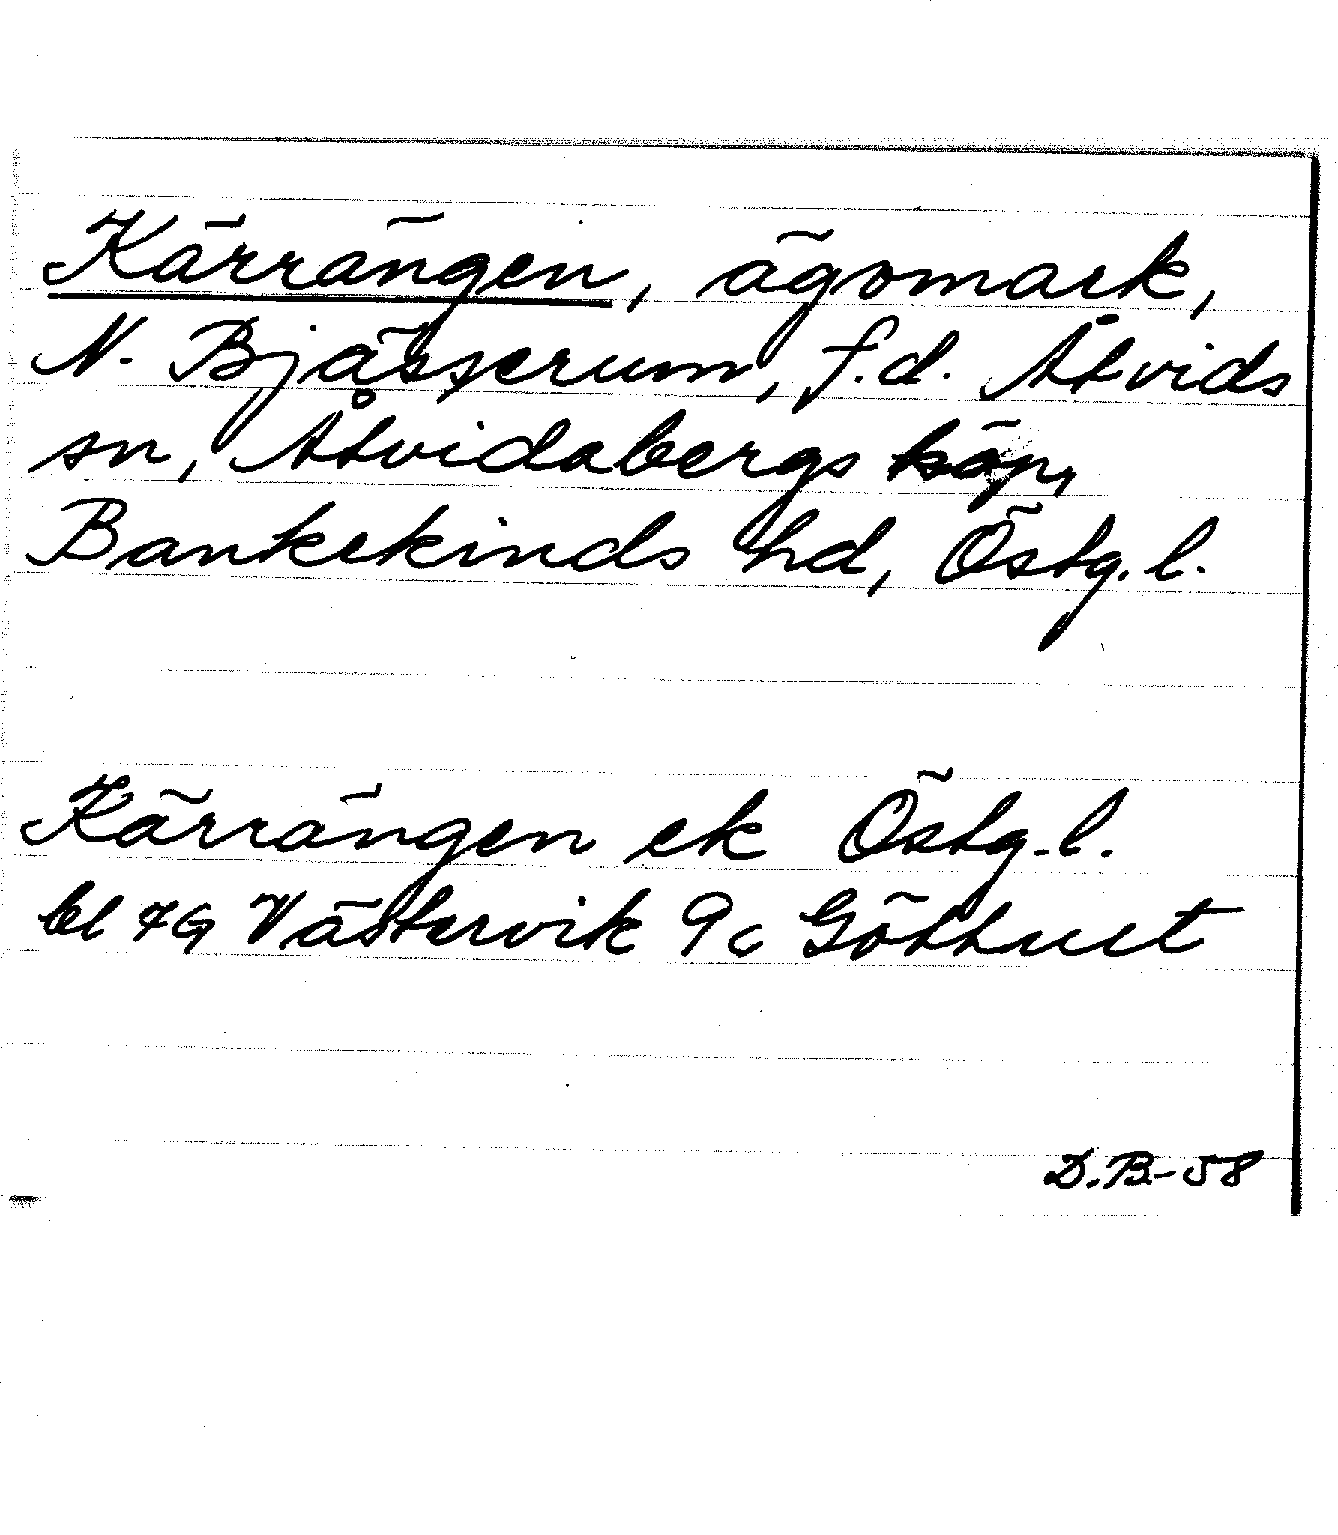 Kärrängen, ägomark,
N. Bjässerum, f.d. Åtvids
sn, Åtvidabergs köp,
Bankekinds hd, Östg.l.
Kärrängen ek Östg.l.
bl 7G Västervik 9c Götthult
D.B-58